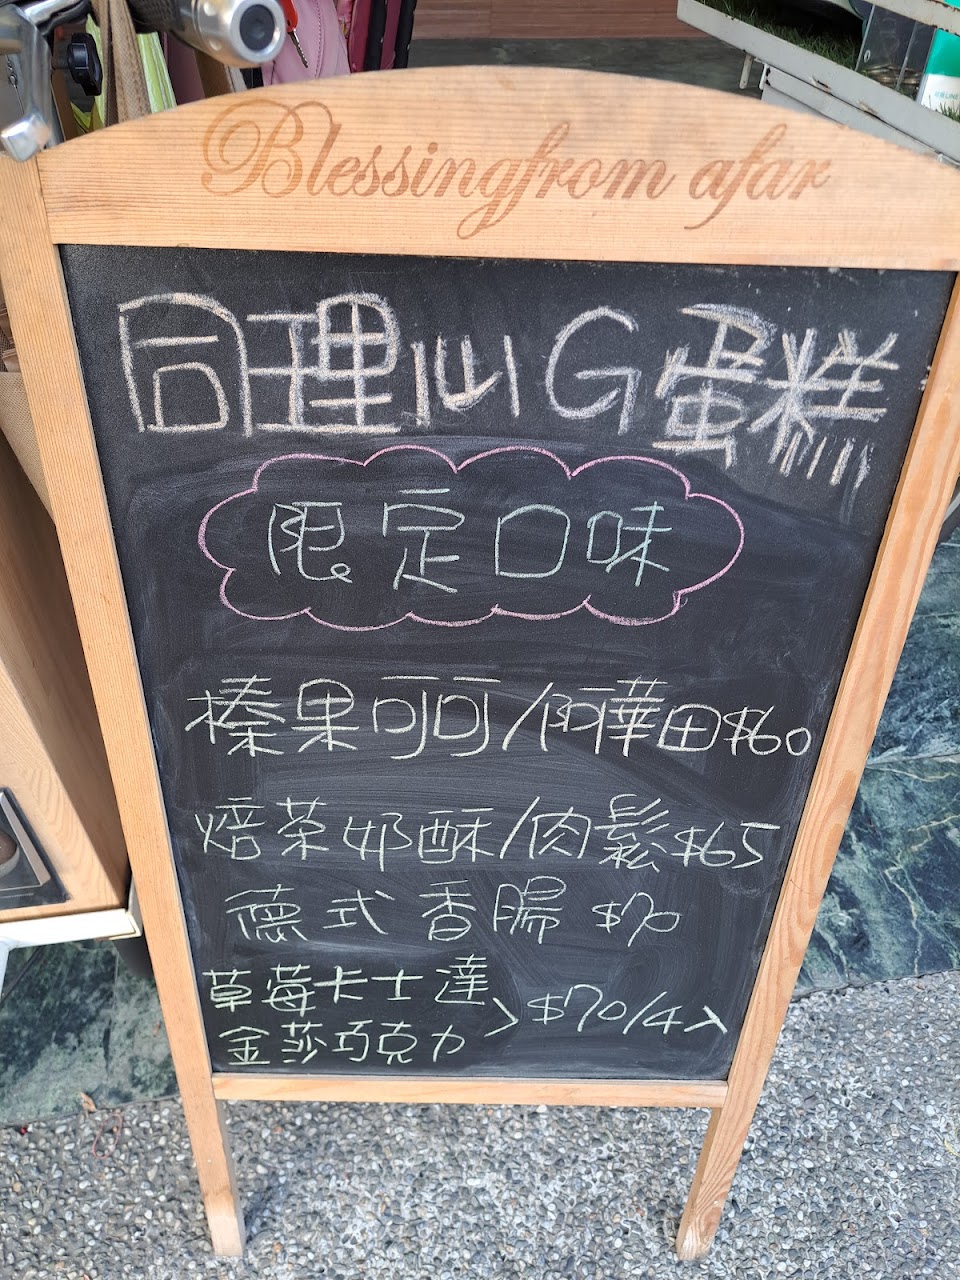 Blessing from afar
同理心G蛋糕
限定口味
榛果可可/阿華田$60
焙茶奶酥/肉鬆$65
德式香腸 $70
草莓卡士達
金莎巧克力
>$70/4入